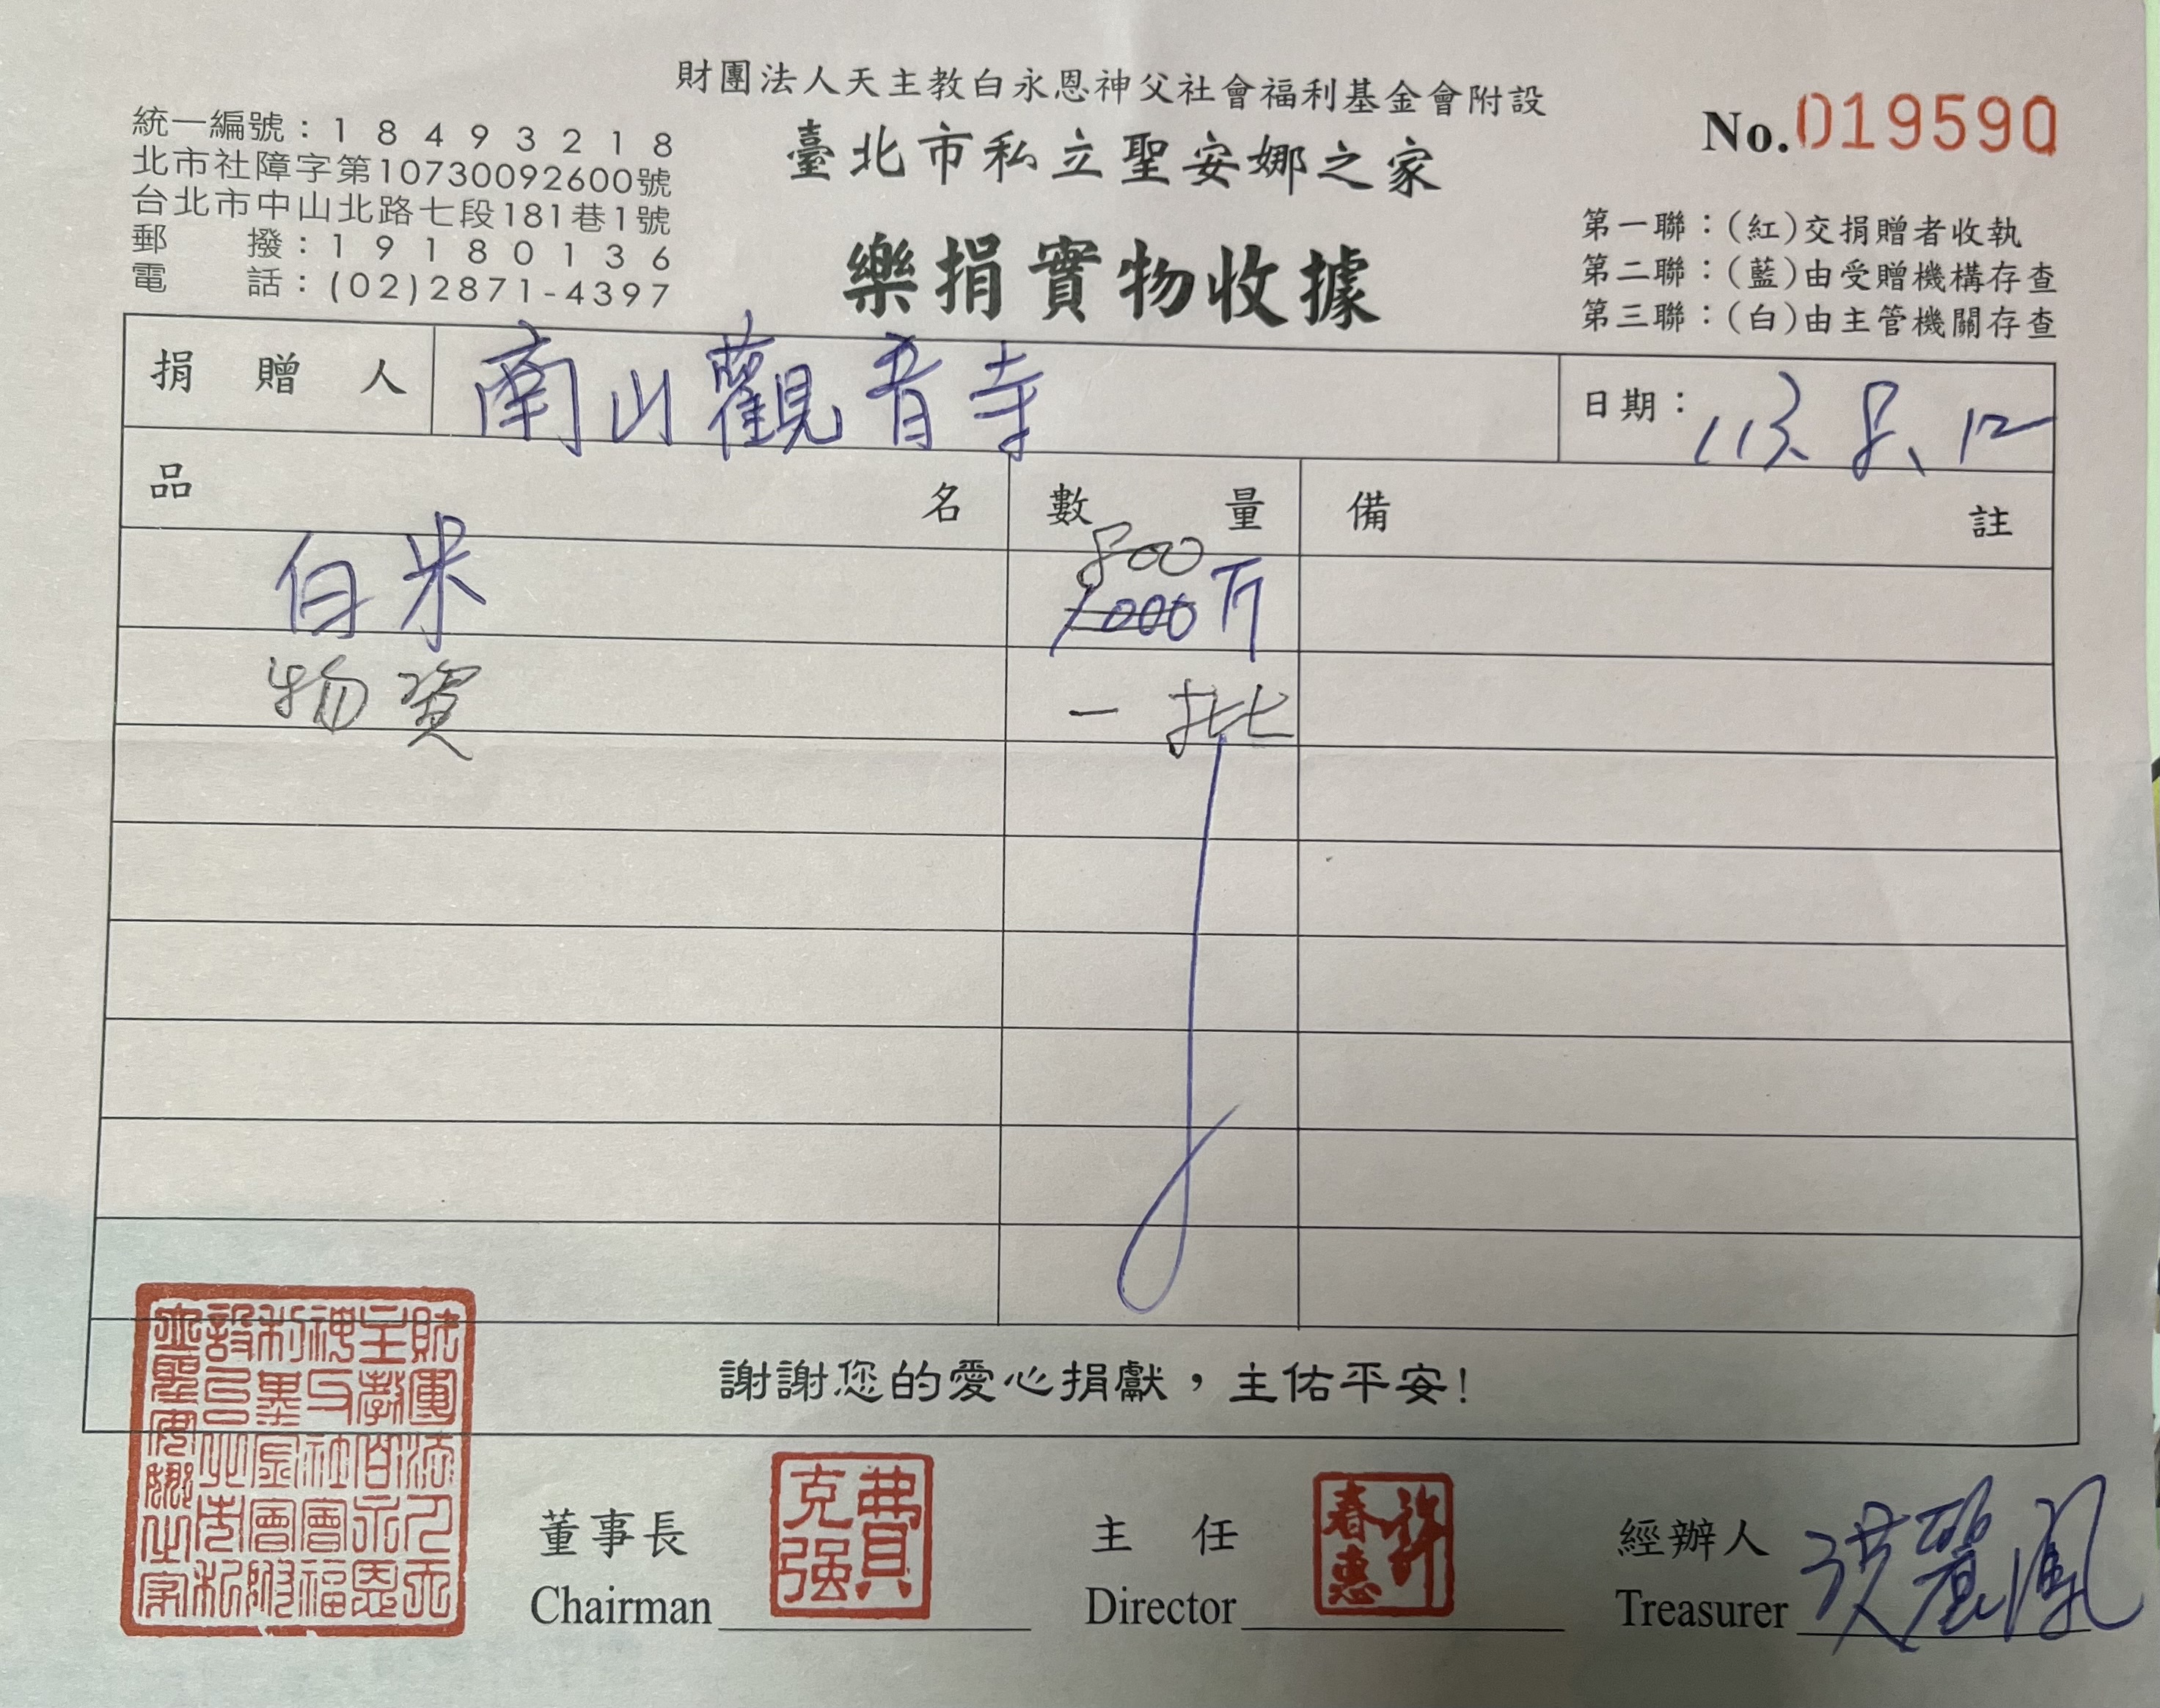 財團法人天主教白永恩神父社會福利基金會附設
臺北市私立聖安娜之家
樂捐實物收據
No.019590
統一編號：18493218
北市社障字第10730092600號
台北市中山北路七段181巷1號
郵撥：19180136
電話：(02)2871-4397
第一聯：(紅)交捐贈者收執
第二聯：(藍)由受贈機構存查
第三聯：(白)由主管機關存查
捐贈人 南山觀音寺 日期：113.8.12
品名 數量 備註
800
白米 1000斤
物資 一批
謝謝您的愛心捐獻，主佑平安！
財團法人天主教白永恩神父社會福利基金會附設台北市私立聖安娜之家
董事長 費克強
Chairman
主任 許春惠
Director
經辦人 洪麗鳳
Treasurer